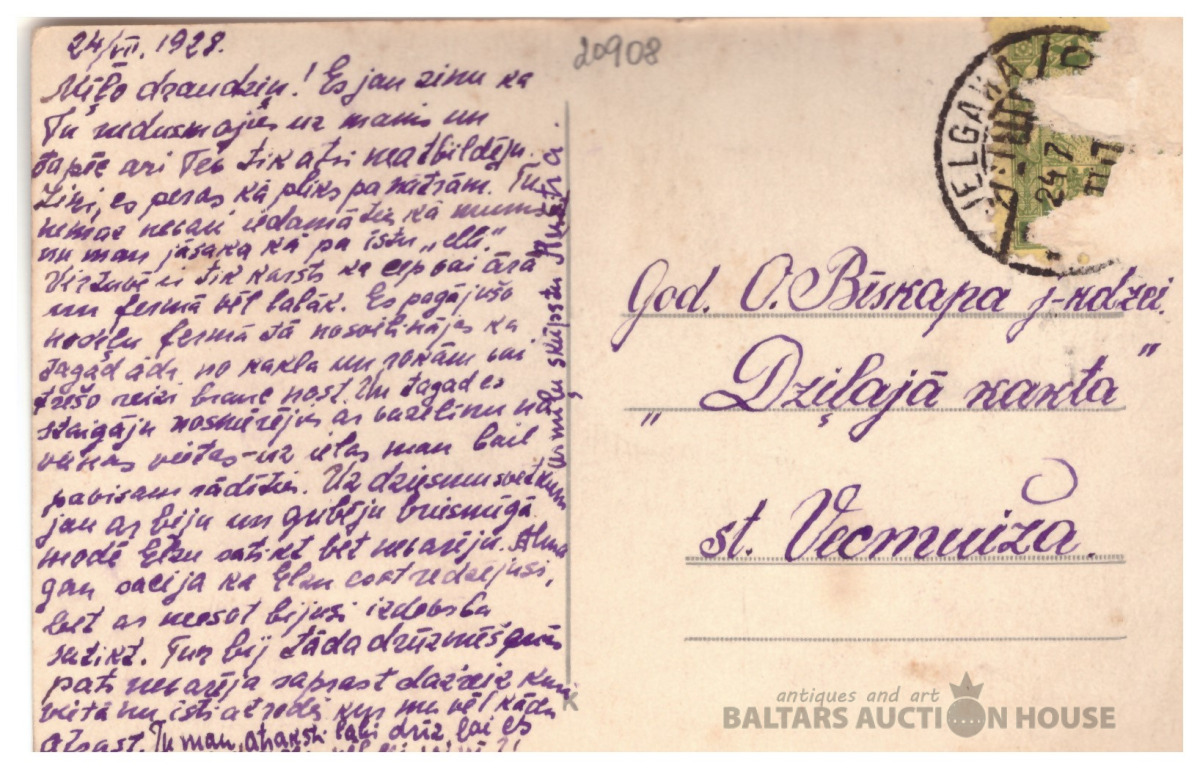 24/VII. 1928.
Mīļo draudziņ! Es jau zinu ka
Tu nedusmojies uz manis un
tapēc ari Tev tik ātri neatbildēju.
Zini, es peros kā pliks pa nātrām. Tu
nemaz nevari iedomāties kā mums
nu man jāsaka kā pa īstu „elli."
Virtuvē ir tik karsts ka cep vai ārā
un fermā vēl labāk. Es pagājušo
nedēļu fermā tā nosvilinājos ka
tagad āda no kakla un rokām vai
trešo reizi brauc nost. Un tagad es
staigāju nosmērējus ar vazelinu
vietas - uz ielas man bail
pavisam rādīties. Uz dziesmusvētkiem
jau ar biju un gribēju briesmīgā
modē Elzu satikt bet nevarēju. Alma
gan sacija ka Elzu esot redzējusi,
bet ar neesot bijusi izdevība
satikt. Tur bij tāda drūzma
pats nevarēja saprast dažreiz kurā
vietā nu īsti atrodos kur nu vēl kādu
atrast. Tu man atraksti labi drīz lai es
ar mīļu skūpstu
20908
JELGAVA
24 7
God. O. Bīskapa j-kdzei.
„Dziļajā kakta"
st. Vecmuiža.
antiques and art
BALTARS AUCTION HOUSE